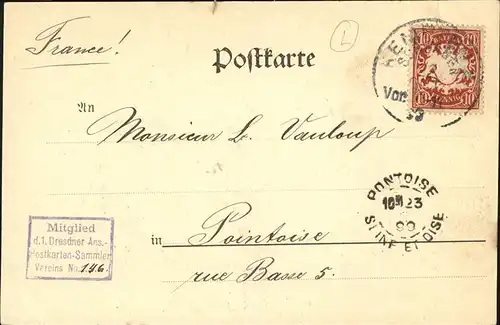 France!
Postkarte
L
10 10
PFENNIG 10
Vor.
An
Monsieur L. Vauloup
PONTOISE
23
SEINE ET OISE
in Pointoise
rue Basse 5.
Mitglied
d. 1. Dresdner Ans.-
Postkarten-Sammler
Vereins No. 146.